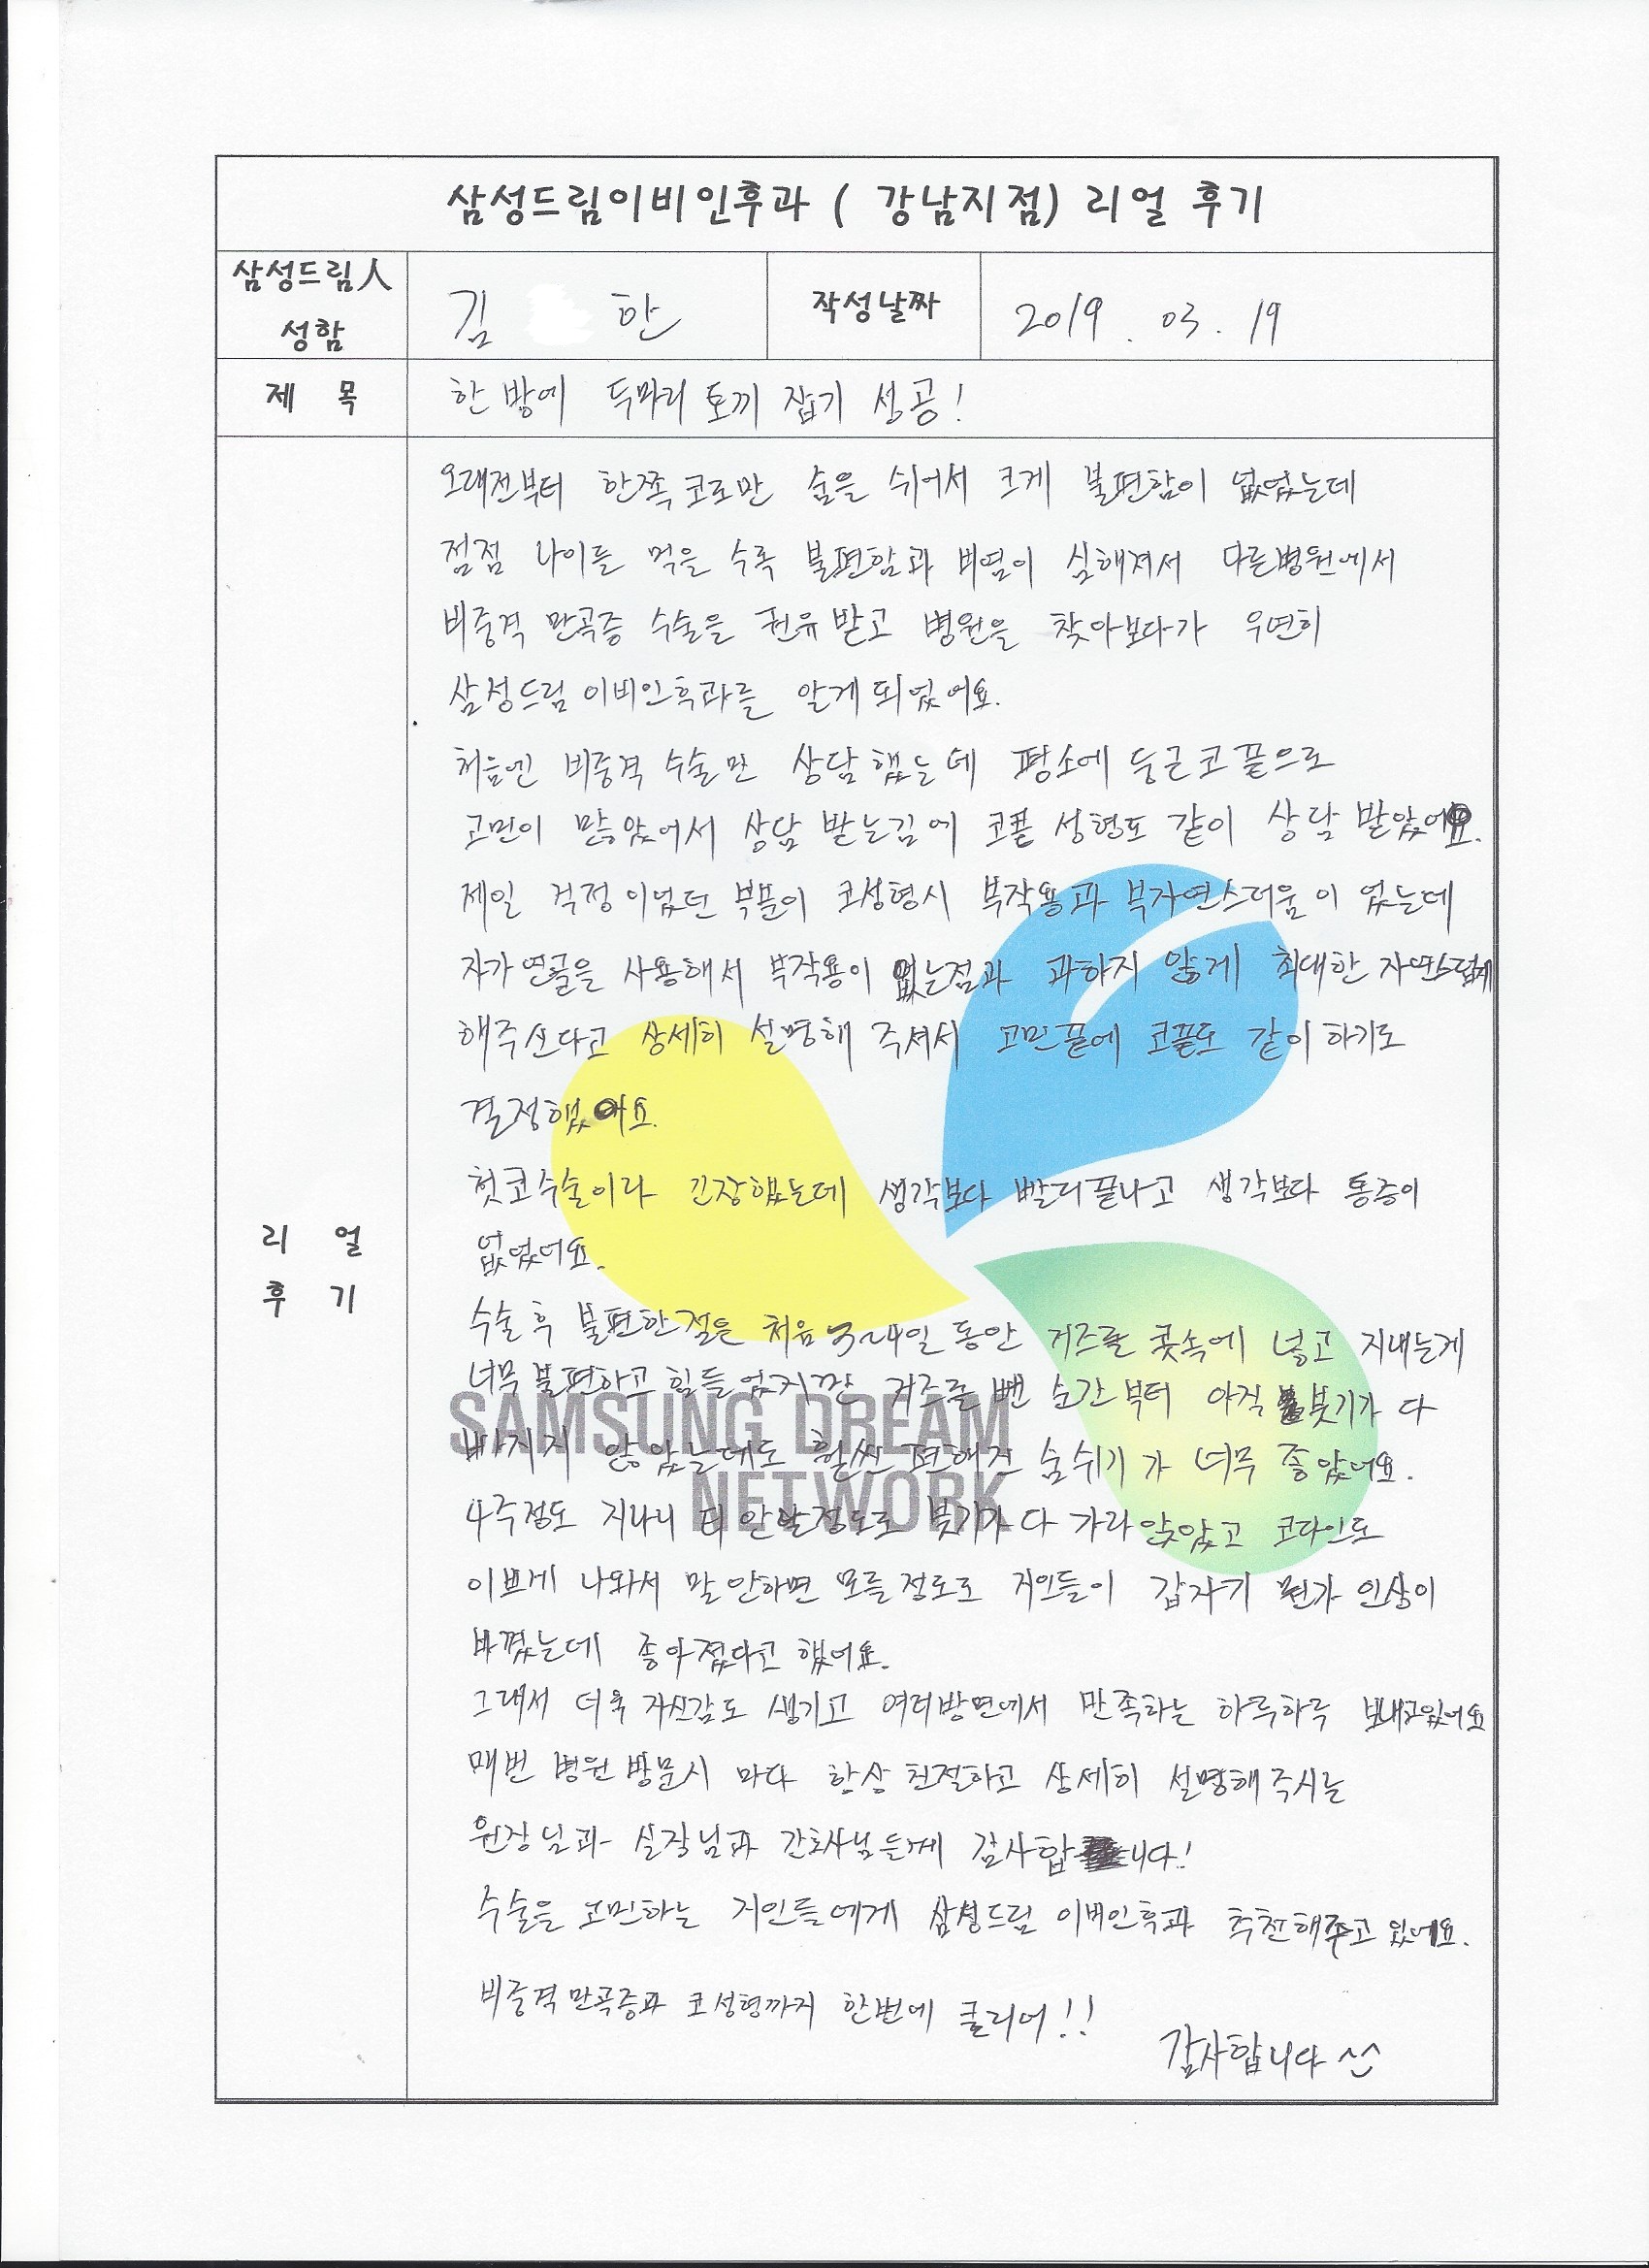 삼성드림이비인후과 ( 강남지점) 리얼 후기
삼성드림人
성함
김 한
작성날짜
2019. 03. 19
제 목
한방에 두마리 토끼 잡기 성공!
리 얼
후 기
오래전부터 한쪽 코로만 숨을 쉬어서 크게 불편함이 없었는데
점점 나이를 먹을 수록 불편함과 비염이 심해져서 다른병원에서
비중격 만곡증 수술을 권유 받고 병원을 찾아보다가 우연히
삼성드림 이비인후과를 알게 되었어요.
처음엔 비중격 수술만 상담했는데 평소에 둥근 코끝으로
고민이 많았어서 상담 받는김에 코끝 성형도 같이 상담 받았어요.
제일 걱정이었던 부분이 코성형시 부작용과 부자연스러움이 었는데
자가연골을 사용해서 부작용이 없는점과 과하지 않게 최대한 자연스럽게
해주신다고 상세히 설명해 주셔서 고민끝에 코끝도 같이 하기로
결정했어요.
첫 코수술이라 긴장했는데 생각보다 빨리끝나고 생각보다 통증이
없었어요.
수술 후 불편한점은 처음 3~4일 동안 거즈를 콧속에 넣고 지내는게
너무 불편하고 힘들었지만 거즈를 뺀 순간부터 아직 붓기가 다
빠지지 않았는데도 훨씬 편해진 숨쉬기가 너무 좋았어요.
4주정도 지나니 티 안날정도로 붓기가 다 가라앉았고 코라인도
이쁘게 나와서 말 안하면 모를 정도로 지인들이 갑자기 뭔가 인상이
바꼈는데 좋아졌다고 했어요.
그래서 더욱 자신감도 생기고 여러방면에서 만족하는 하루하루 보내고있어요
매번 병원 방문시 마다 항상 친절하고 상세히 설명해주시는
원장님과 실장님과 간호사님들께 감사합니다!
수술을 고민하는 지인들에게 삼성드림 이비인후과 추천해주고 있어요.
비중격만곡증과 코성형까지 한번에 클리어!!
감사합니다 ^^
SAMSUNG DREAM
NETWORK